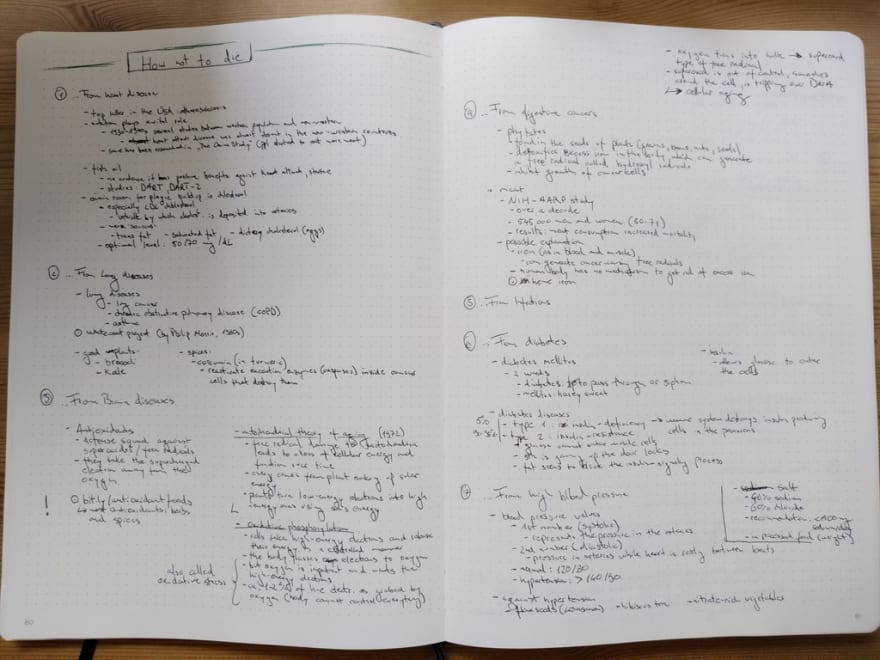 How not to die
1 ...From heart disease
- top killer in the USA: atherosclerosis
- nutrition plays a vital role
- several studies between western population and non-western
- heart disease was almost absent in the non-western countries
- same has been in "The China Study"
- fish oil
- no evidence it has positive benefits against heart attack, stroke
- studies: DART, DART-2
- for plaque buildup is cholesterol
- especially LDL cholesterol
- by which cholest. is deposited into arteries
- trans fat - saturated fat - dietary cholesterol (eggs)
- optimal level: 50/70 mg/dL
2 ...From Lung diseases
- lung diseases
- lung cancer
- chronic obstructive pulmonary disease (COPD)
- asthma
whitecoat project (by Philip Morris, 1980s)
- good plants:
- broccoli
- kale
- spices:
- curcumin (in turmeric)
- reactivate execution enzymes (caspases) inside cancer
cells that destroy them
3 ...From Brain diseases
- Antioxidants
- defense squad against
superoxides / free radicals
- they take the supercharged
electron away from the
oxygen
! bit.ly/antioxidantfoods
most antioxidants: herbs
and spices
- mitochondrial theory of aging (1972)
- free radical damage to mitochondria
leads to a loss of cellular energy and
function over time
- energy comes from plant energy of solar
energy
- plants turn low-energy electrons into high
energy ones using sun's energy
- oxidative phosphorylation
- cells take high-energy electrons and release
their energy in a controlled manner
- the body passes electrons to oxygen
- but oxygen is impatient and wants the
high-energy electrons
- of the electr. is grabbed by
oxygen (body cannot control everything)
also called
oxidative stress
80
- oxygen turns into → superoxid
type of free radical
- superoxid is out of control,
around the cell, is tipping over DNA
↳ cellular aging
4 ...From digestive cancers
- phytates
- found in the seeds of plants (grains, beans, nuts, seeds)
- detoxifies excess iron in the body, which can generate
a free radical called hydroxyl radicals
- inhibit growth of cancer cells
- meat
- NIH-AARP study
- over a decade
- 545.000 men and women (50-71)
- results: meat consumption increased mortality
- possible explanation
- iron (as in blood and muscle)
- can generate cancer-causing free radicals
- human body has no mechanism to get rid of excess iron
heme iron
5 ...From Infections
6 ...From diabetes
- diabetes mellitus
- 2 words
- diabetes: to pass through or siphon
- mellitus: honey sweet
- insulin
- allows glucose to enter
the cells
- diabetes diseases
5% - type 1: insulin-deficiency → immune system destroys insulin producing
cells in the pancreas
90-95% - type 2: insulin-resistance
- glucose cannot enter muscle cells
- fat is jamming up the door locks
- fat seems to block the insulin-signaling process
7 ...From high blood pressure
- blood pressure values
- 1st number (systolic)
- represents the pressure in the arteries
- 2nd number (diastolic)
- pressure in arteries while heart is resting between beats
- normal: 120/80
- hypertension: > 140/90
- salt
- 40% sodium
- 60% chloride
- recommendation: <1500mg
sodium/day
- in processed food (weight)
- against hypertension
- flaxseeds - hibiscus tea - nitrate-rich vegetables
81